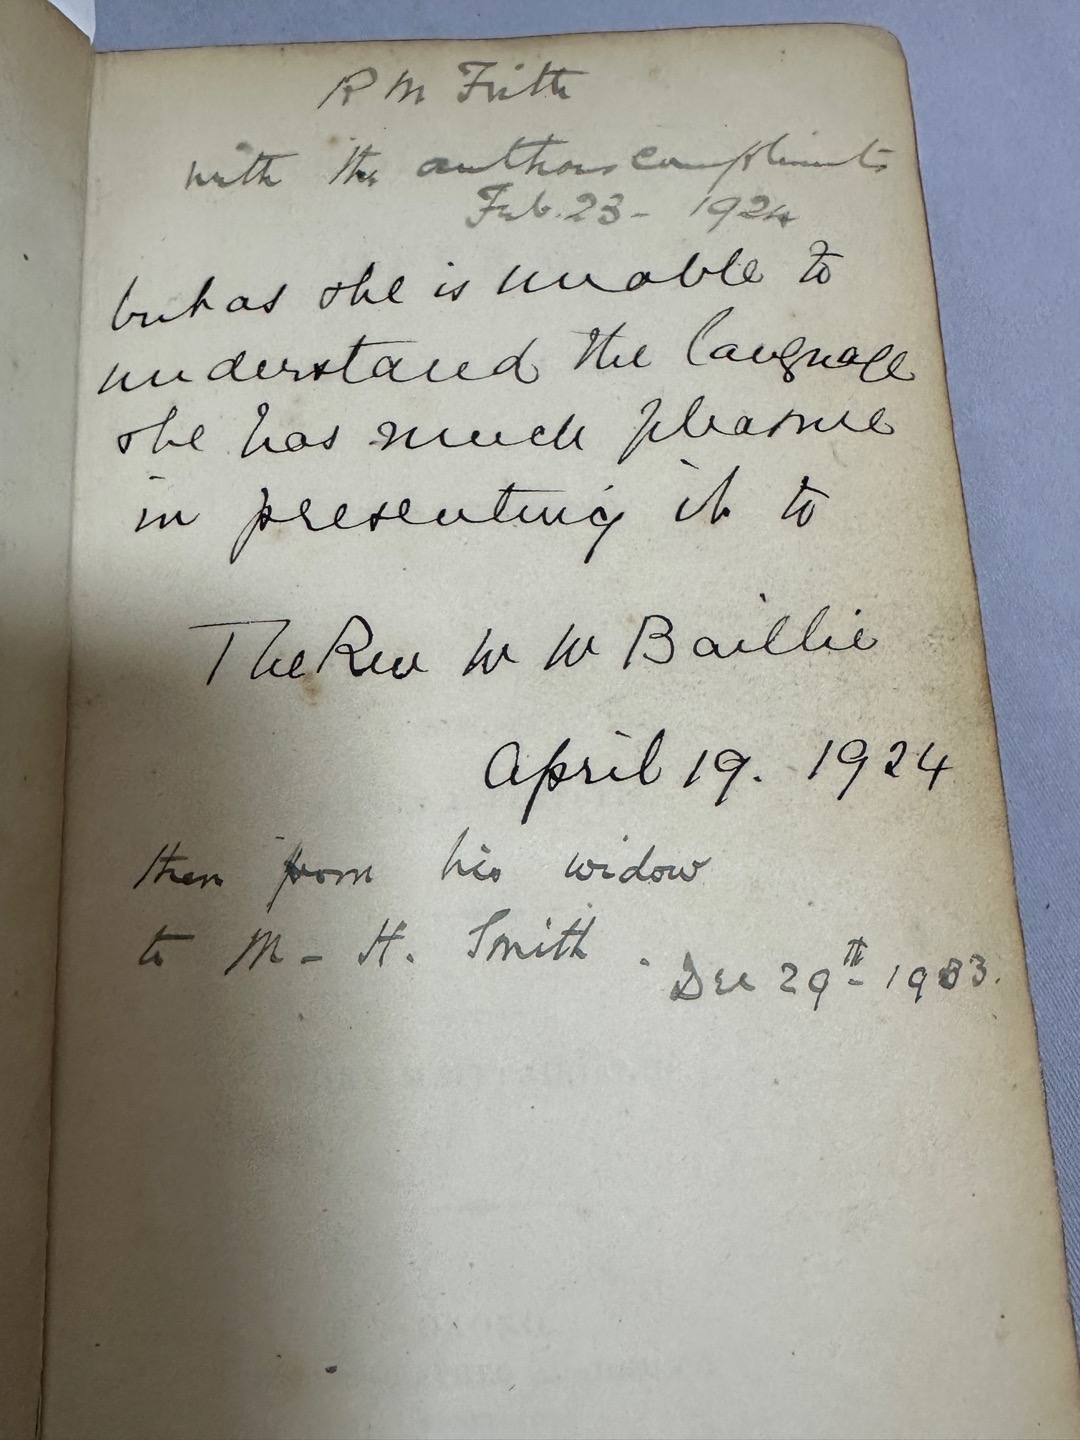 R M Frith
with the authors compliments
Feb. 23 - 1924
but as she is unable to
understand the language
she has much pleasure
in presenting it to
The Rev W W Baillie
April 19. 1924
then from his widow
to M - H. Smith .
Dec 29th - 1933.